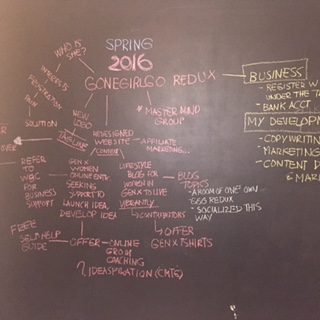 SPRING
2016
GONEGIRLGO REDUX
WHO IS
SHE?
NEW
LOGO
* MASTER MIND
GROUP
SOLUTION
TAGLINE
REDESIGNED
WEBSITE
CONTENT
AFFILIATE
MARKETING...
OVER
REFER
TO
FOR
BUSINESS
SUPPORT
GEN X
WOMEN
SEEKING
SUPPORT TO
LAUNCH IDEA,
DEVELOP IDEA
LIFESTYLE
BLOG FOR
WOMEN IN
GEN X TO LIVE
VIBRANTLY
BLOG
TOPICS
- A ROOM OF ONE'S OWN
- GGG REDUX
- SOCIALIZED THIS
WAY
CONTRIBUTORS
OFFER
GEN X T SHIRTS
FREE
SELF HELP
GUIDE
OFFER - ONLINE
GROUP
COACHING
?. IDEASPIRATION (CMTE)
BUSINESS
- REGISTER W
UNDER THE
- BANK ACCT
MY DEVELOPM
- COPYWRITIN
- MARKETING
- CONTENT D